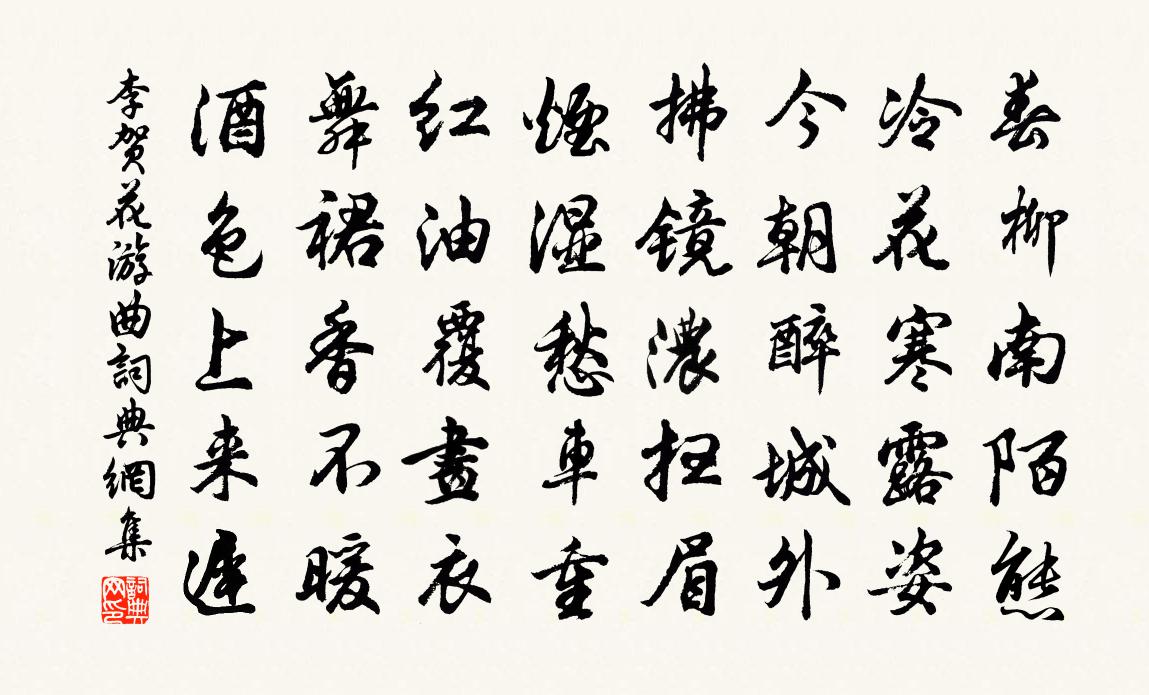 春柳南陌態
冷花寒露姿
今朝醉城外
拂镜濃扫眉
煙湿愁車重
红油覆畫衣
舞裙香不暖
酒色上来遲
李贺花游曲詞典網集
詞典网印